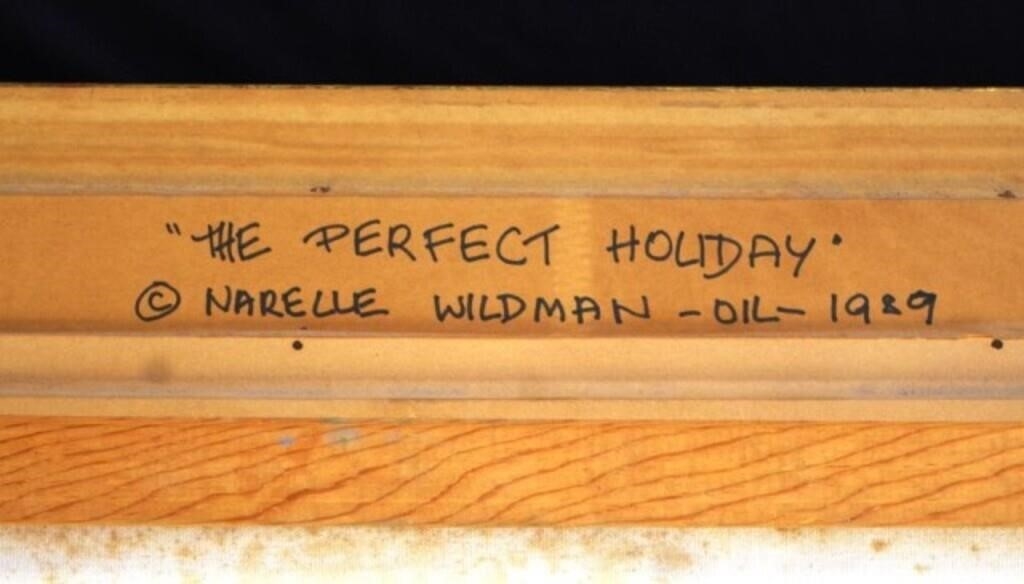 "THE PERFECT HOLIDAY"
© NARELLE WILDMAN - OIL - 1989